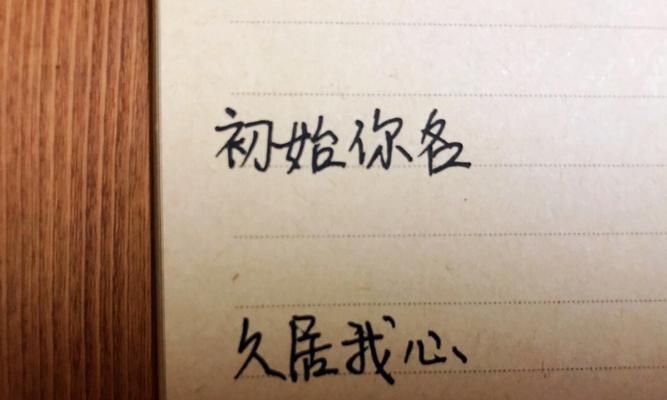 初始你名
久居我心、